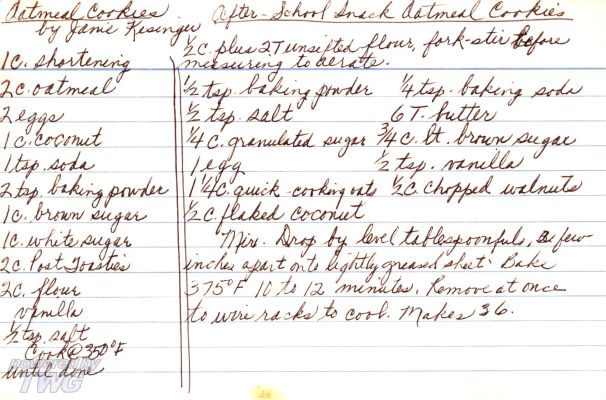 Oatmeal Cookies
by Janie Kisinger
1 c. shortening
2 c. oatmeal
2 eggs
1 c. coconut
1 tsp. soda
2 tsp. baking powder
1 c. brown sugar
1 c. white sugar
2 c. Post Toasties
2 c. flour
vanilla
1/2 tsp. salt
Cook @ 350°F
until done
After-School Snack Oatmeal Cookies
1/2 c. plus 2 T unsifted flour, fork-stir before
measuring to aerate.
1/2 tsp. baking powder 1/4 tsp. baking soda
1/2 tsp. salt 6 T. butter
1/4 c. granulated sugar 3/4 c. lt. brown sugar
1 egg 1/2 tsp. vanilla
1 1/4 c. quick-cooking oats 1/2 c. chopped walnuts
1/2 c. flaked coconut
Mix. Drop by level tablespoonful, a few
inches apart onto lightly greased sheet. Bake
375°F 10 to 12 minutes. Remove at once
to wire racks to cool. Makes 36.
powered by
TWG